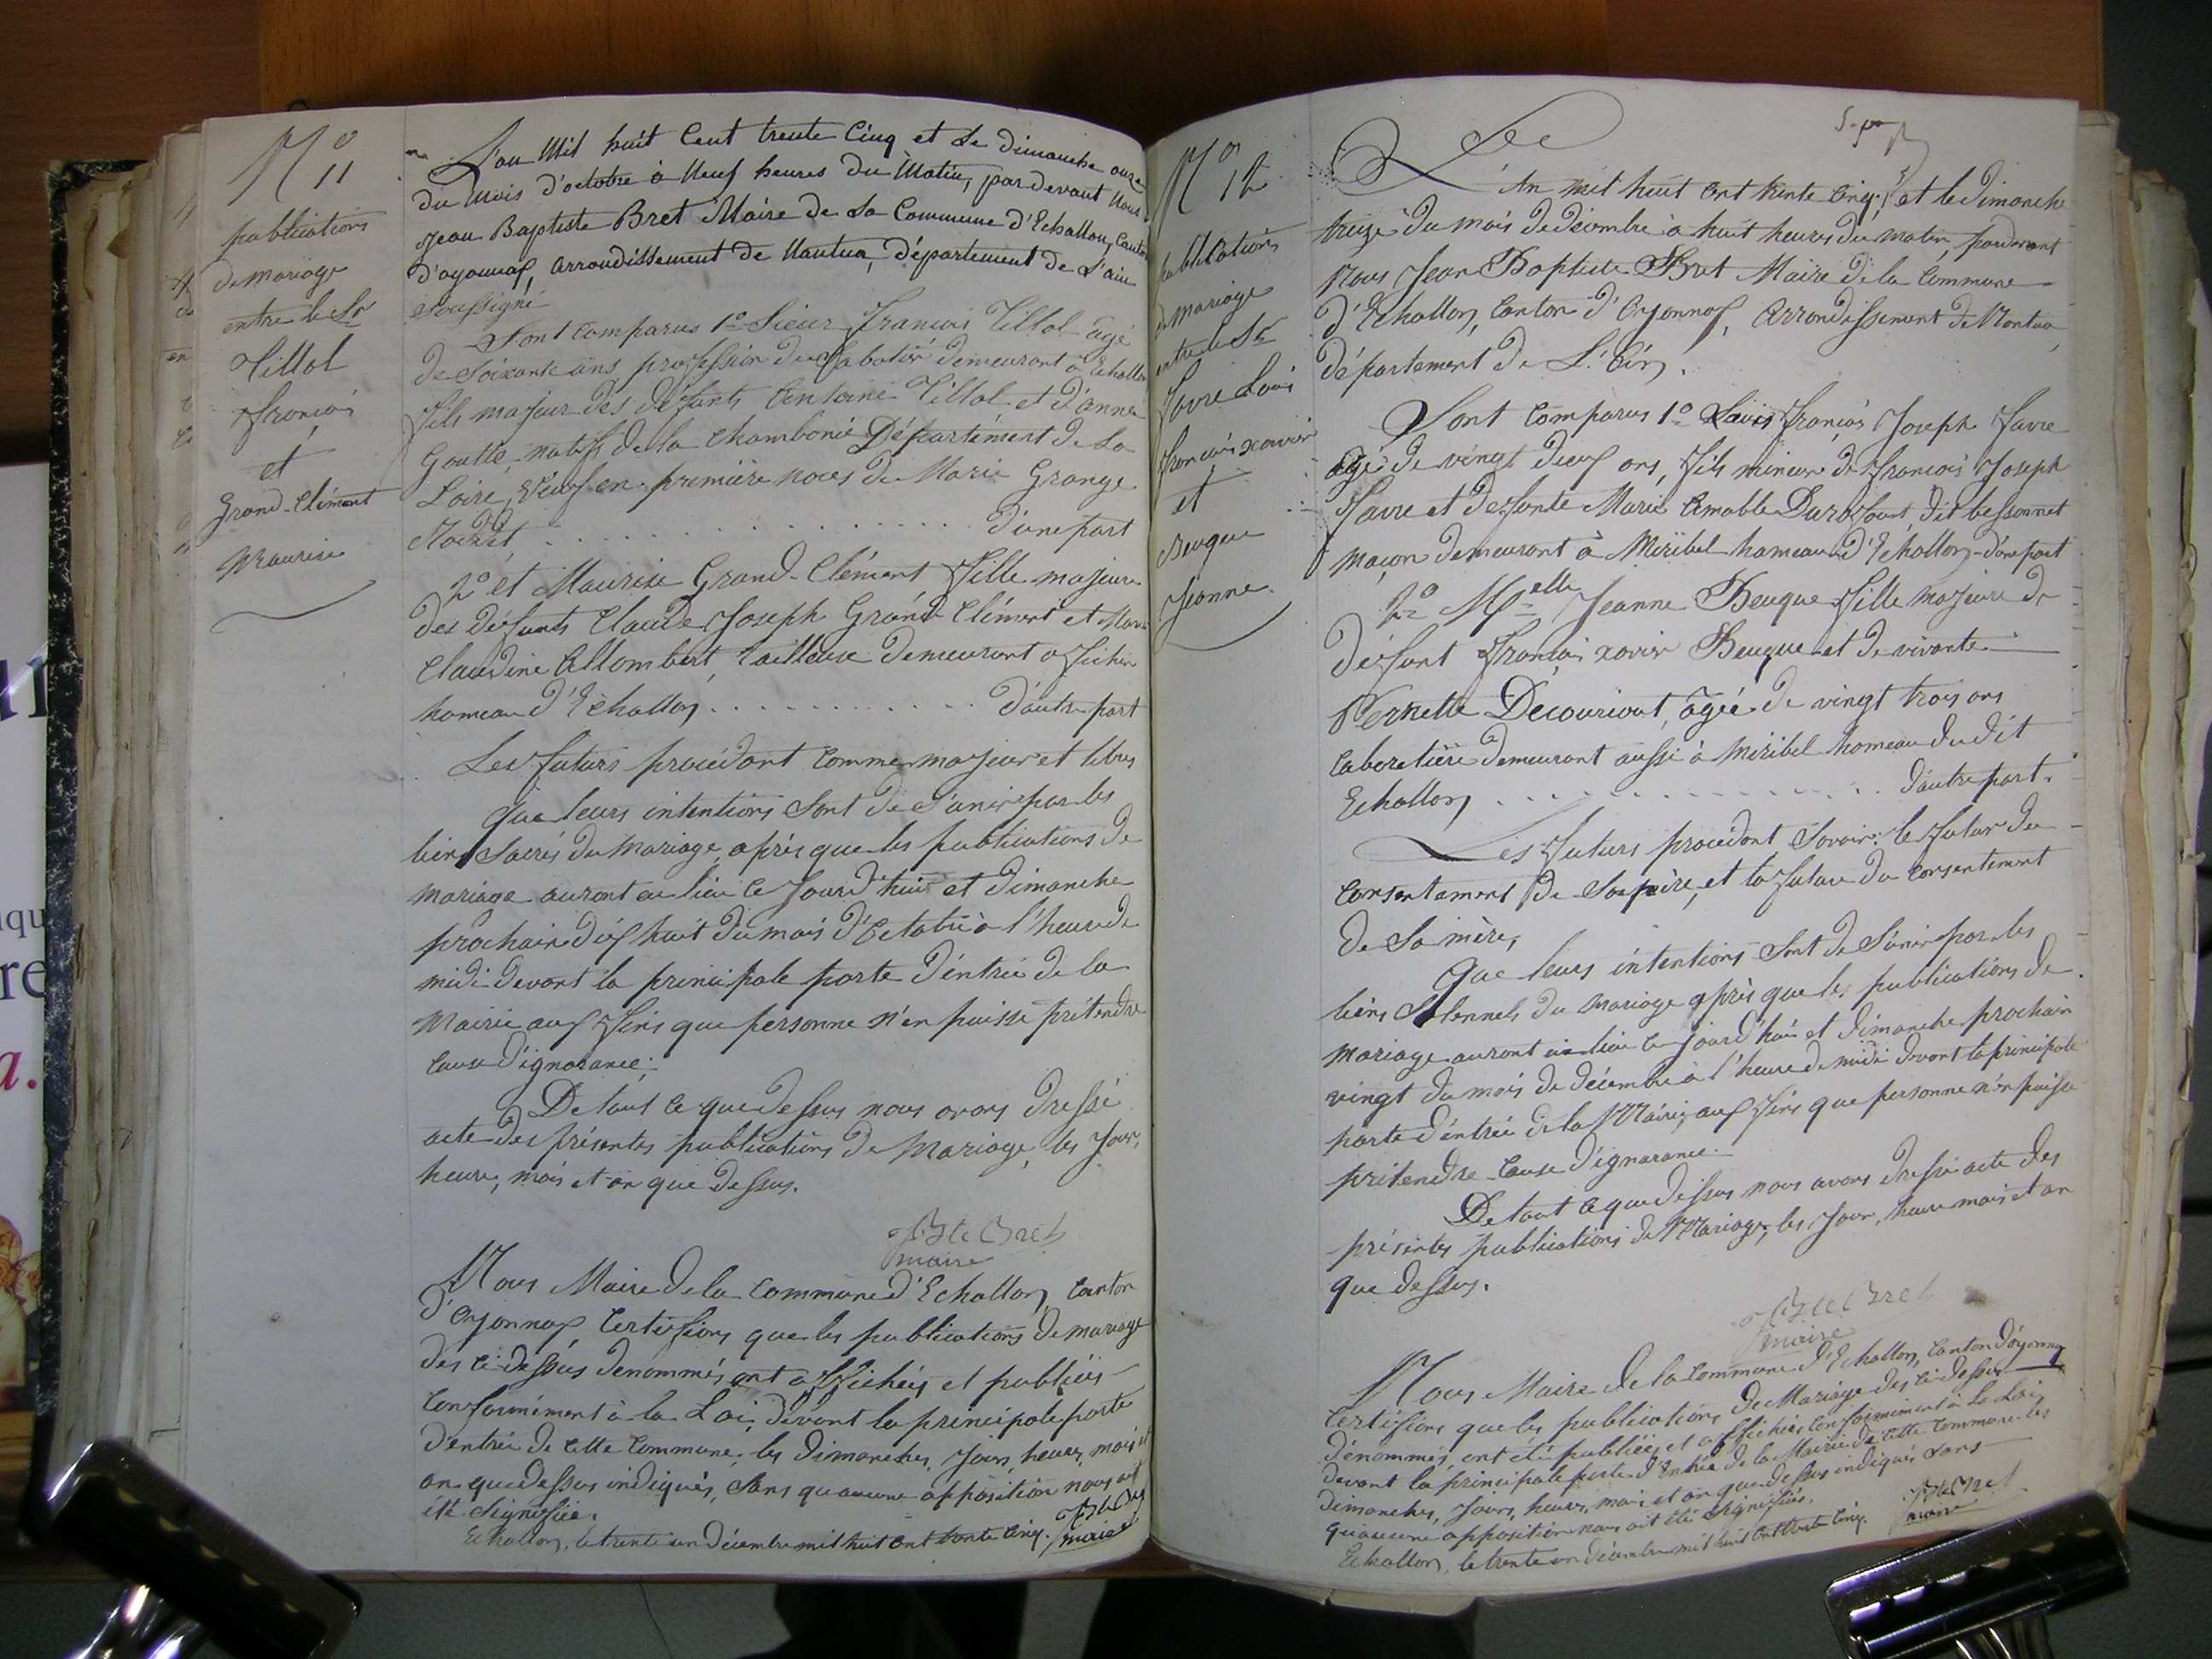 N° 11
publications
de mariage
entre le Sr
Tillol
françois
et
Grand-Clément
Maurise
L'an Mil huit Cent trente Cinq et Le dimanche onze
du Mois d'octobre à Neuf heures du Matin, pardevant Nous
Jean Baptiste Bret Maire de La Commune d'Echallon, Canton
d'oyonnax, arrondissement de Nantua, département de L'ain
soussigné
Sont comparus 1° Sieur François Tillol âgé
de soixante ans profession de Sabotié demeurant à Echallon
fils majeur des défunts Antoine Tillol et d'anne
Goutte, natif de la Chambonie Département de La
Loire, Veuf en première noces de Marie Grange
d'une part
2° et Maurise Grand-Clément fille majeure
des défunts Claude Joseph Grand-Clément et Marie
Claudine Allombert, tailleuse demeurant a
hameau d'Echallon . . . . . . . . . . . . d'autre part
Les futurs procédant comme majeur et libres
Que leurs intentions sont de s'unir par les
liens sacrés du mariage, après que les publications de
mariage auront eu lieu ce jourd'hui et dimanche
prochain dix huit du mois d'Octobre à l'heure de
midi devant la principale porte d'entrée de la
Mairie aux fins que personne n'en puisse prétendre
cause d'ignorance.
De tout ce que dessus nous avons dressé
acte des présentes publications de Mariage, les jour,
heure, mois et an que dessus.
JBte Bret
maire
Nous Maire de la commune d'Echallon, canton
d'Oyonnax, Certifions que les publications de mariage
des ci-dessus dénommés ont affichées et publiées
conformément à la Loi, devant la principale porte
d'entrée de cette commune, les dimanches, jours, heures, mois et
an que dessus indiqués, sans qu'aucune opposition nous ait
été signifiée.
Echallon, le trente un décembre mil huit cent trente cinq. JBte Bret
maire
N° 12
publications
de mariage
entre le Sr
Favre Louis
françois xavier
et
Beuque
Jeanne.
L'An mil huit cent trente cinq, et le dimanche
treize du mois de décembre à huit heures du matin, pardevant
Nous Jean Baptiste Bret Maire de la Commune
d'Echallon, Canton d'Oyonnax, Arrondissement de Nantua,
département de L'Ain.
Sont comparus 1° Louis françois Joseph Favre
âgé de vingt deux ans, fils mineur de françois Joseph
Favre et defunte Marie Amable Duraffourt, dit bessonnet
maçon demeurant à Miribel hameau d'Echallon d'une part
2° Melle Jeanne Beuque fille majeure de
défunt françois xavier Beuque et de vivante
Pernette Décourioux, âgée de vingt trois ans
Cabaretière demeurant aussi à Miribel hameau du dit
Echallon, . . . . . . . . . . . . . . . d'autre part.
Les futurs procédant Savoir: le futur du
consentement de Son père, et la future du consentement
de Sa mère,
Que leurs intentions sont de s'unir par les
liens Solennels du mariage après que les publications de
mariage auront eu lieu ce jourd'hui et dimanche prochain
vingt du mois de décembre à l'heure de midi devant la principale
porte d'entrée de la Mairie, aux fins que personne n'en puisse
prétendre cause d'ignorance.
De tout ce que dessus nous avons dressé acte des
présentes publications de Mariage, les jour, heure mois et an
que dessus.
JBte Bret
maire
Nous Maire de la commune d'Echallon, canton d'oyonnax
Certifions que les publications de Mariage des ci-dessus
dénommés, ont été publiées et affichées conformément à la Loi,
devant la principale porte d'entrée de la Mairie de cette commune les
dimanches, jours, heures, mois et an que dessus indiqués sans
qu'aucune opposition nous ait été signifiée.
Echallon, le trente un décembre mil huit cent trente cinq. JBte Bret
maire